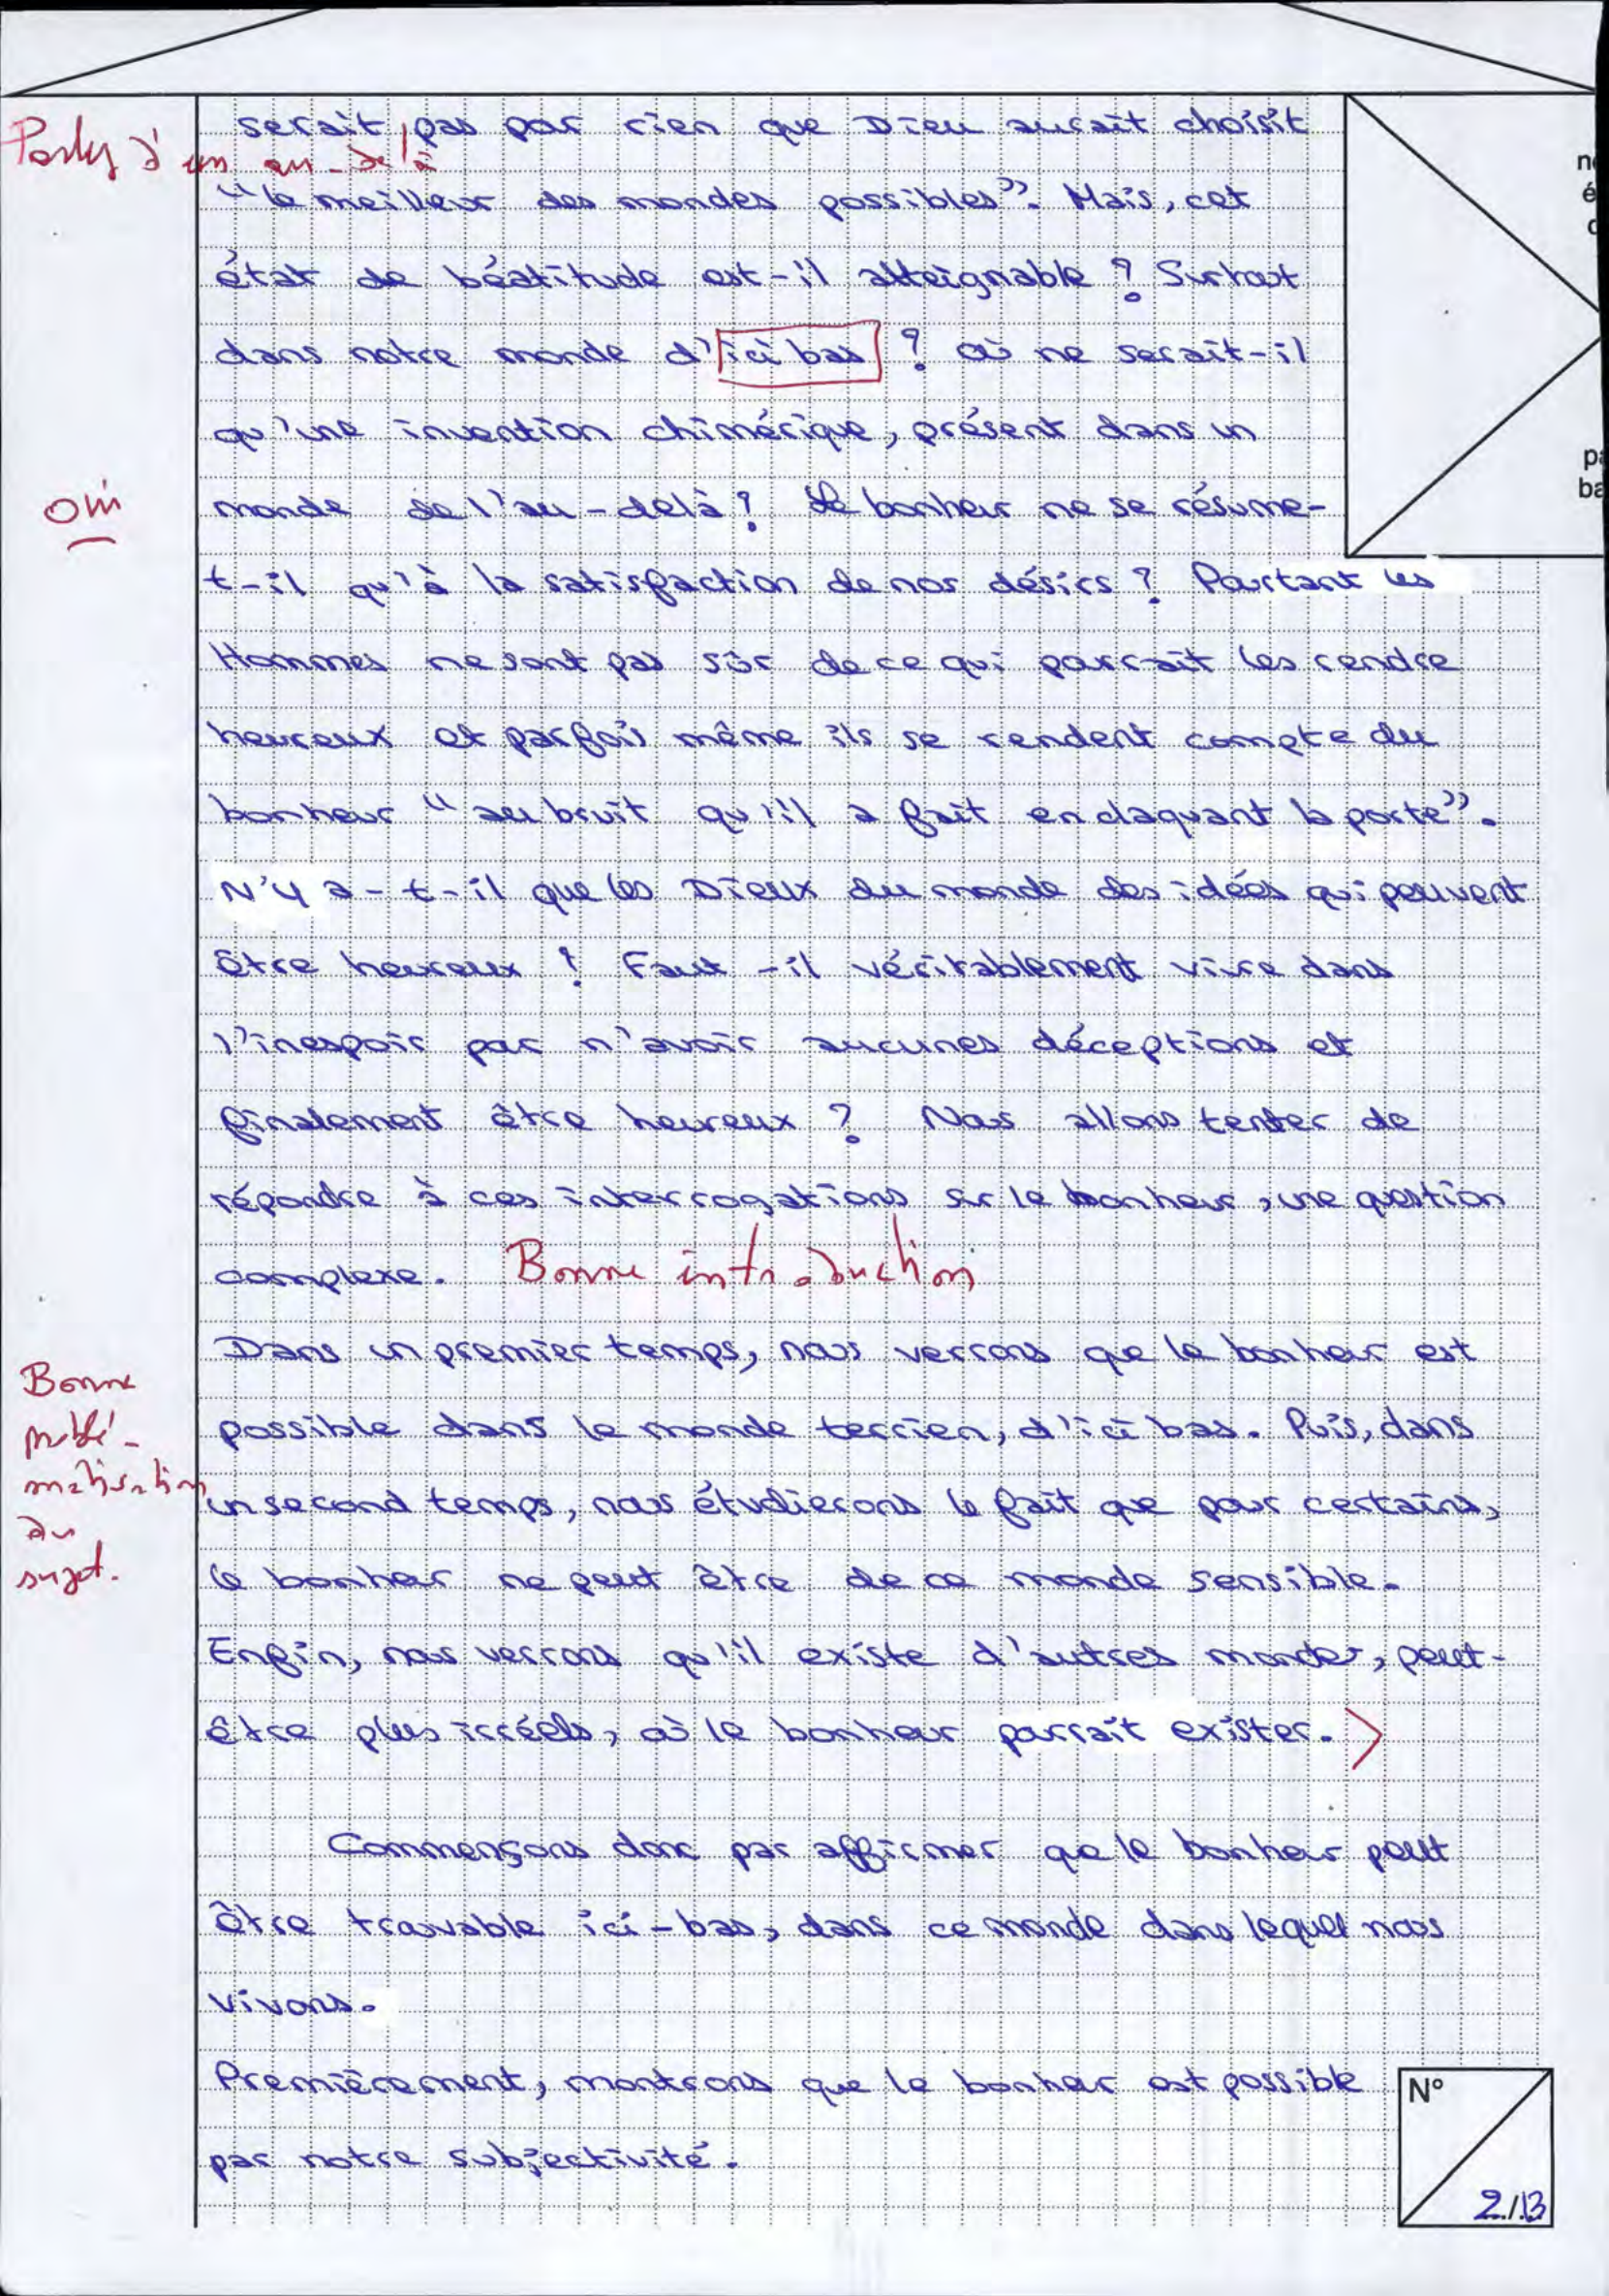 serait pas par rien que Dieu aurait choisit
Parler d'un au-delà
"le meilleur des mondes possibles". Mais, cet
état de béatitude est-il atteignable ? Surtout
dans notre monde d'ici bas ? Où ne serait-il
qu'une invention chimérique, présent dans un
oui
monde de l'au-delà ? Le bonheur ne se résume-
t-il qu'à la satisfaction de nos désirs ? Pourtant les
Hommes ne sont pas sûr de ce qui pourrait les rendre
heureux et parfois même ils se rendent compte du
bonheur "au bruit qu'il a fait en claquant la porte".
N'y a-t-il que les Dieux du monde des idées qui peuvent
être heureux ? Faut-il véritablement vivre dans
l'inespoir par n'avoir aucunes déceptions et
finalement être heureux ? Nous allons tenter de
répondre à ces interrogations sur le bonheur, une question
complexe. Bonne introduction
Dans un premier temps, nous verrons que le bonheur est
Bonne
problé-
matisation
du
sujet.
possible dans le monde terrien, d'ici bas. Puis, dans
un second temps, nous étudierons le fait que pour certains,
le bonheur ne peut être de ce monde sensible.
Enfin, nous verrons qu'il existe d'autres mondes, peut-
être plus irréels, où le bonheur pourrait exister.
Commençons donc par affirmer que le bonheur peut
être trouvable ici-bas, dans ce monde dans lequel nous
vivons.
Premièrement, montrons que le bonheur est possible
par notre subjectivité.
N°
2/13